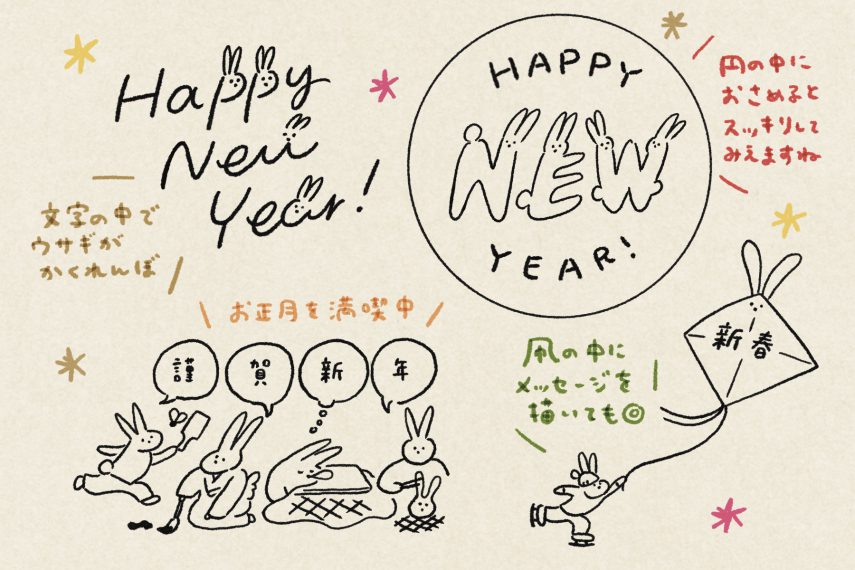 Happy
New
Year!
文字の中で
ウサギが
かくれんぼ
HAPPY
NEW
YEAR!
円の中に
おさめると
スッキリして
みえますね
お正月を満喫中
謹
賀
新
年
新春
凧の中に
メッセージを
描いても◎